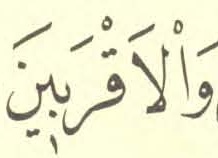 وَالْاَقْرَبٖينَ